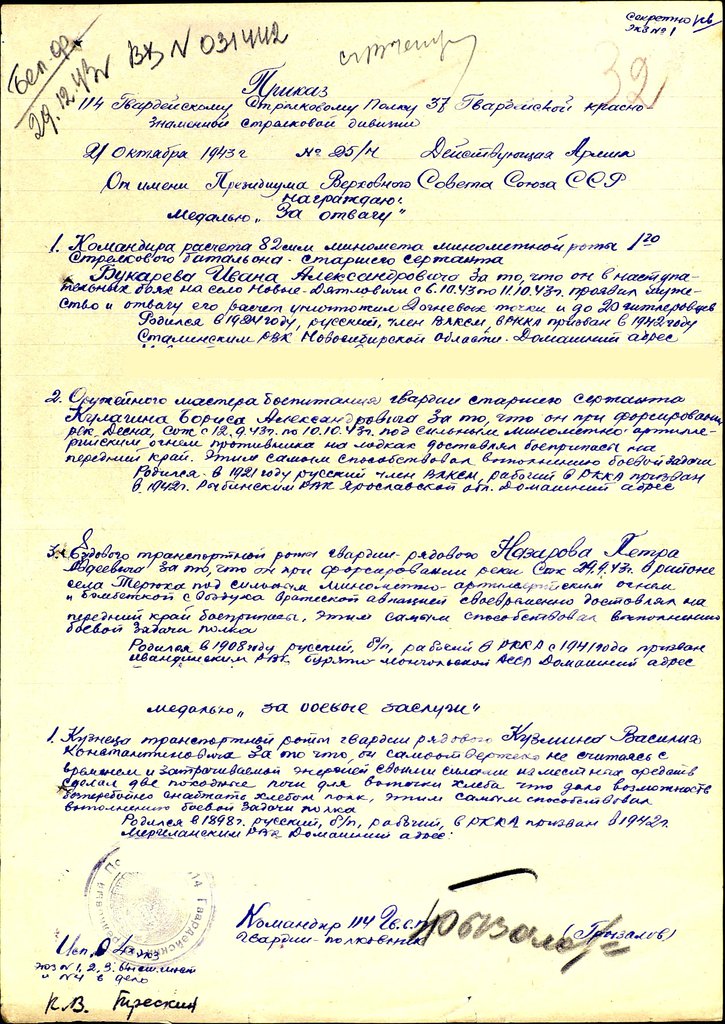 Секретно
Экз № 1
29.12.43г
ВХ № 031442
32
Приказ
114 Гвардейскому Стрелковому Полку 37 Гвардейской красно-
знаменной стрелковой дивизии
21 Октября 1943 г № 25/н Действующая Армия
От имени Президиума Верховного Совета Союза ССР
награждаю:
медалью „За отвагу"
1. Командира расчета 82мм миномета минометной роты 1го
Стрелкового батальона - старшего сержанта
Букарева Ивана Александровича за то, что он в наступа-
тельных боях на село Новые-Дятловичи с 8.10.43 по 11.10.43г. проявил муже-
ство и отвагу его расчет уничтожил 2 огневых точки и до 20 гитлеровцев
Родился в 1924 году, русский, член ВЛКСМ, в РККА призван в 1942 году
Сталинским РВК Новосибирской области. Домашний адрес
2. Оружейного мастера боепитания гвардии старшего сержанта
Кулагина Бориса Александровича за то, что он при форсировании
рек Десна, Сож с 12.9.43г. по 10.10.43г. под сильным минометно-артилле-
рийским огнем противника на лодках доставлял боеприпасы на
передний край. Этим самым способствовал выполнению боевой задачи
Родился в 1921 году русский член ВЛКСМ, рабочий в РККА призван
в 1942г. Рыбинским РВК Ярославской обл. Домашний адрес
3. Ездового транспортной роты гвардии-рядового Назарова Петра
Авдеевича за то, что он при форсировании реки Сож 29.9.43г. в районе
села Терюха под сильным минометно-артиллерийским огнем
и бомбежкой с воздуха вражеской авиацией своевременно доставлял на
передний край боеприпасы, этим самым способствовал выполнению
боевой задачи полка
Родился в 1908 году русский, б/п, рабочий в РККА с 1941 года призван
РВК Бурято-Монгольской АССР Домашний адрес
медалью „за боевые заслуги"
1. Кузнеца транспортной роты гвардии рядового Кузмина Василия
Константиновича за то что, он самоотверженно не считаясь с
временем и затрачиваемой энергией своими силами из местных средств
сделал две походные печи для выпечки хлеба что дало возможность
бесперебойно снабжать хлебом полк, этим самым способствовал
выполнению боевой задачи полка
Родился в 1898г. русский, б/п, рабочий, в РККА призван в 1942г.
РВК Домашний адрес:
114 Гвардейский
Командир 114 Гв.с.п.
гвардии-полковник
Исп. 04 экз
экз № 1, 2, 3. высш. инст
и № 4 в дело